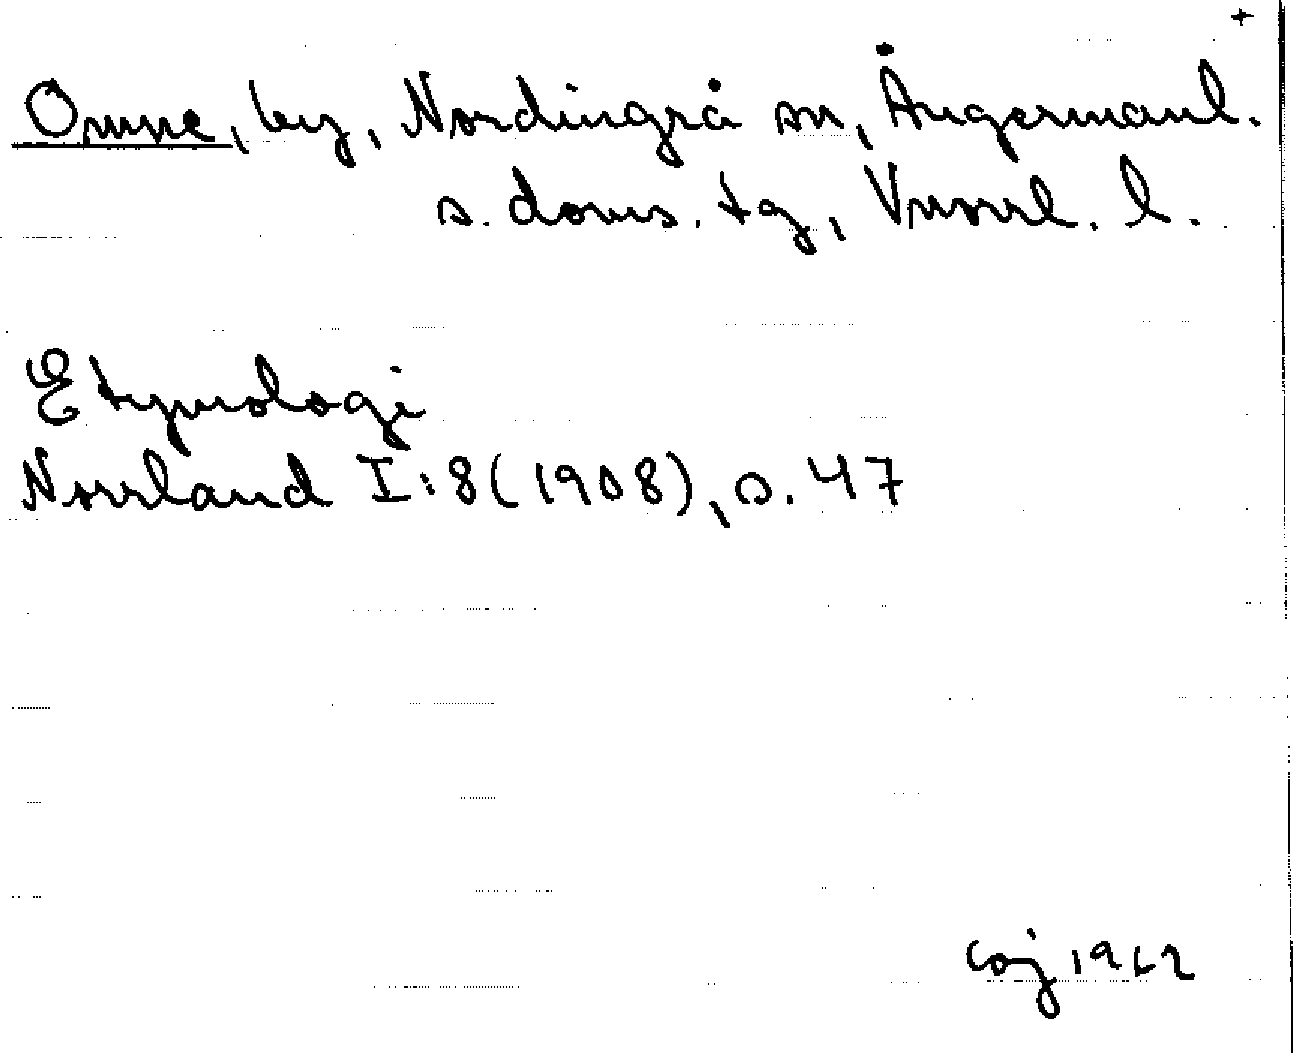 +
Omne, by, Nordingrå sn, Ångermanl.
s. doms. tg, Vnorrl. l.
Etymologi
Norrland I:8 (1908), s. 47
1962